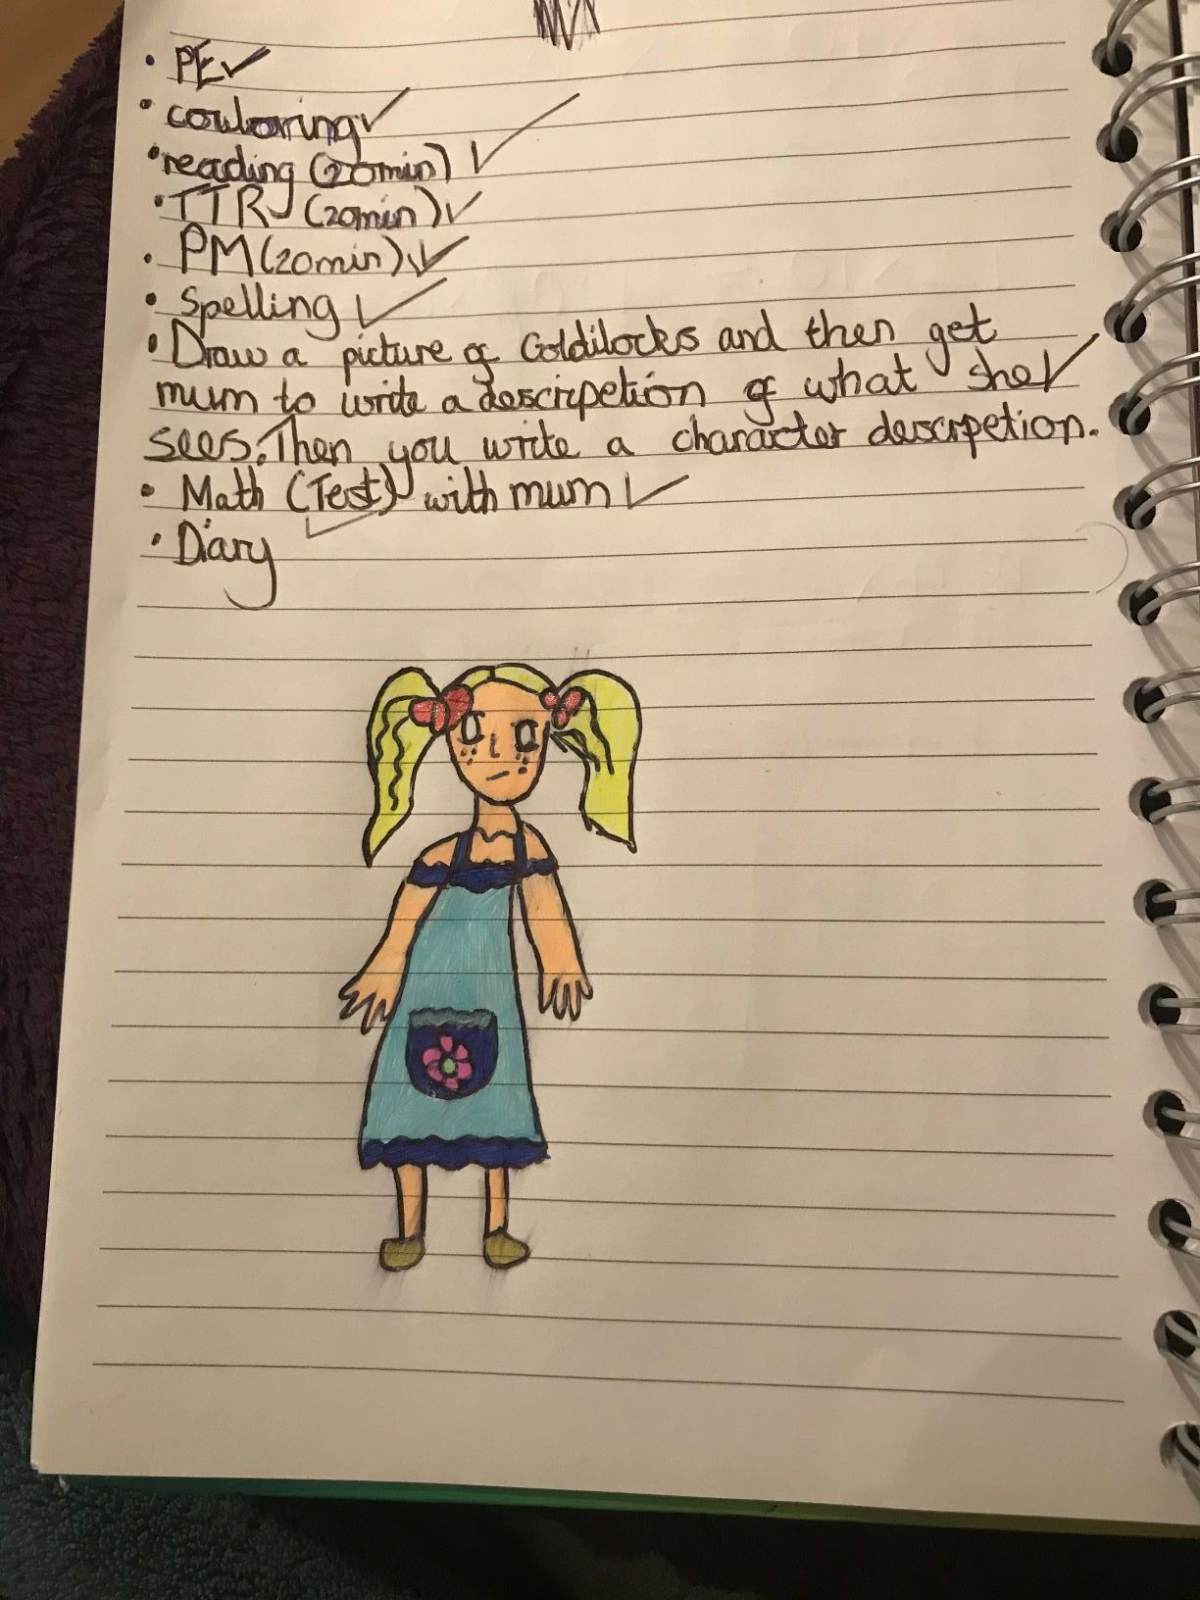 • PE ✓
• coularing ✓
• reading (20min) ✓
• TTR (20min) ✓
• PM (20min) ✓
• Spelling ✓
• Draw a picture of Goldilocks and then get
mum to write a descirpetion of what she ✓
sees. Then you write a character descrpetion.
• Math (Test) with mum ✓
• Diary ✓